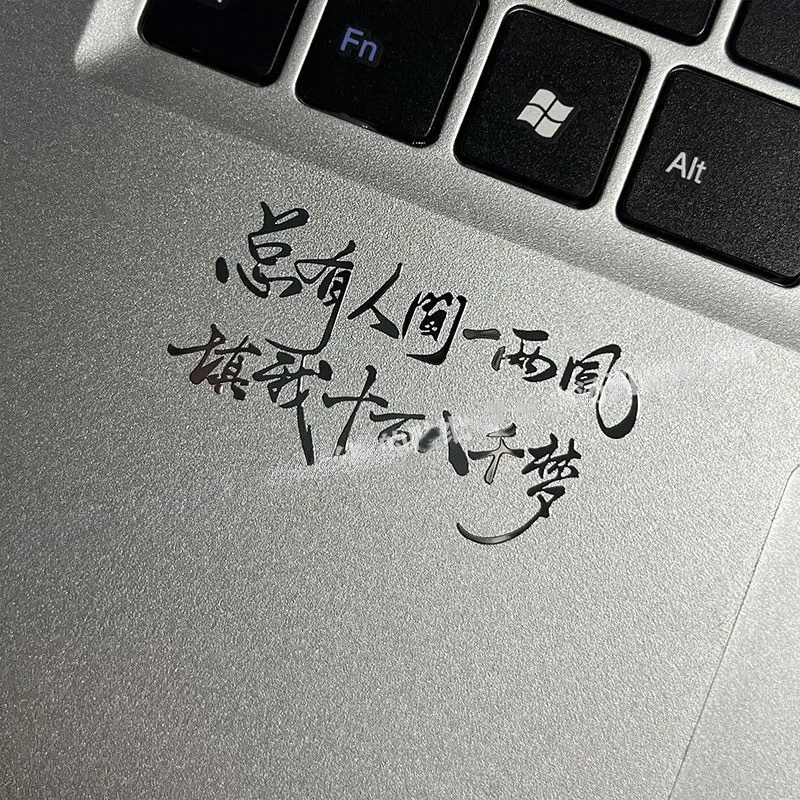 Fn
Alt
总有人間一两風
填我十万八千梦